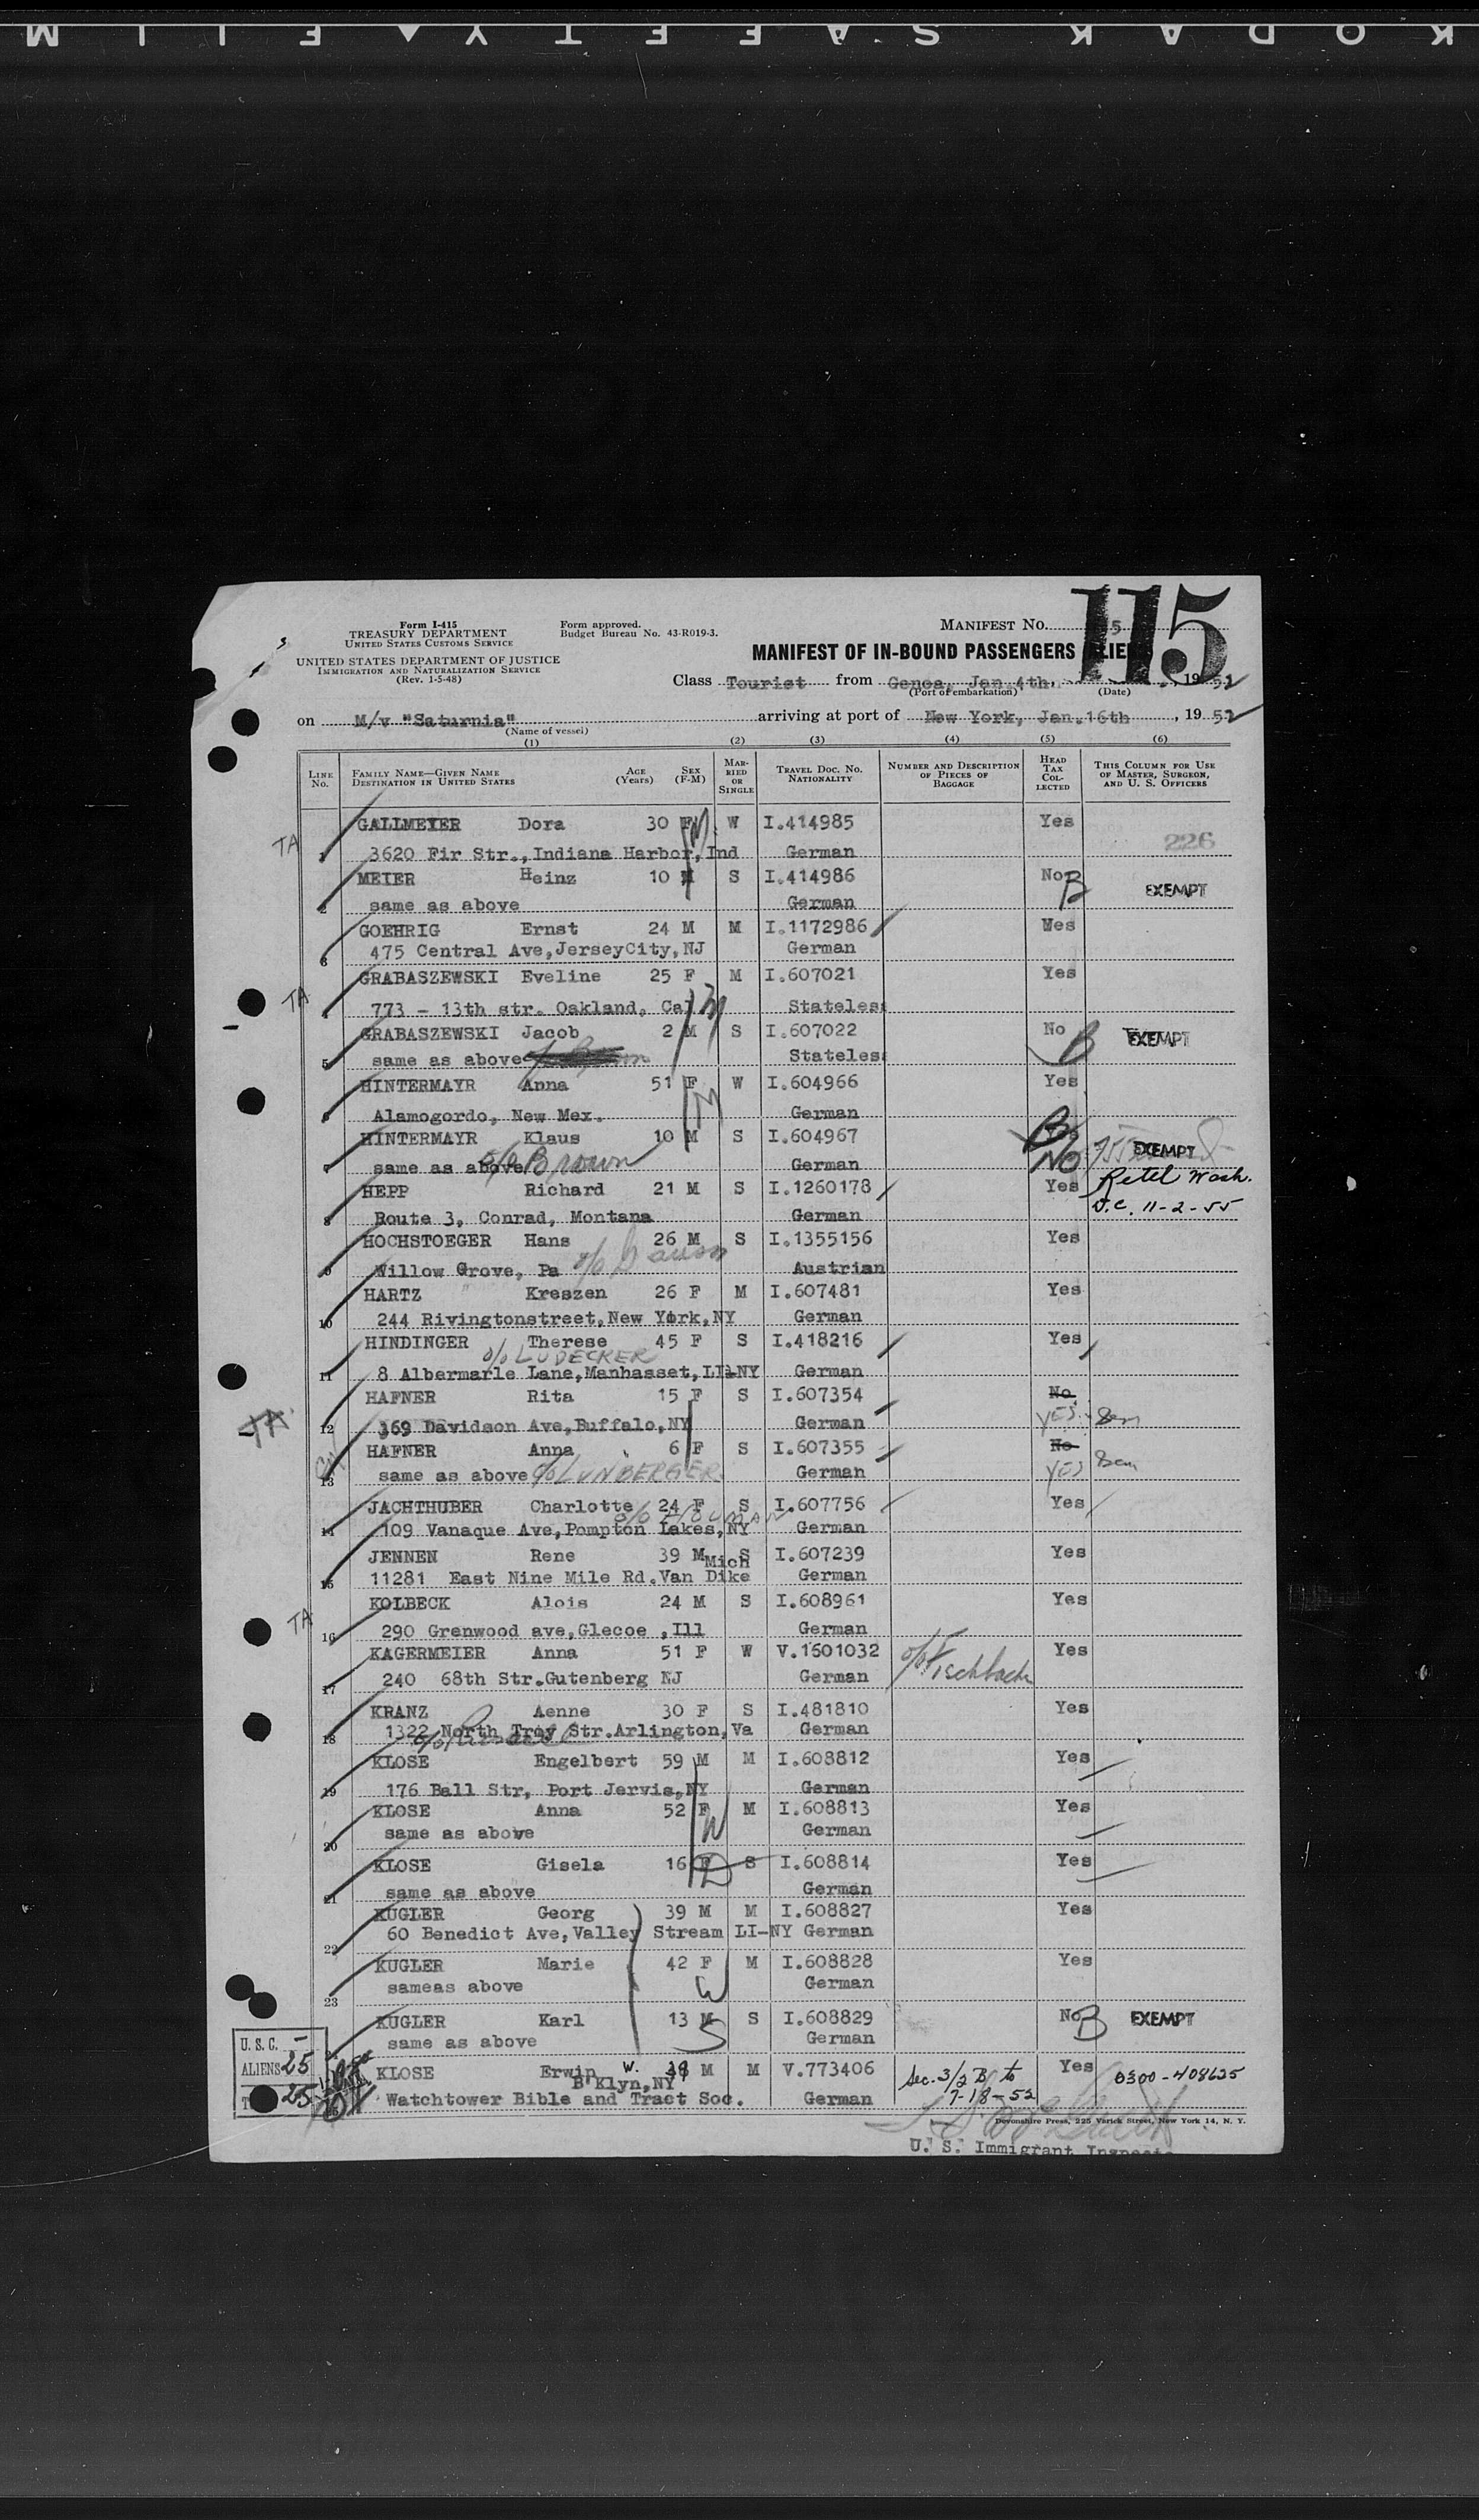 KODAK SAFETY FILM
115
Form I-415
TREASURY DEPARTMENT
UNITED STATES CUSTOMS SERVICE
UNITED STATES DEPARTMENT OF JUSTICE
IMMIGRATION AND NATURALIZATION SERVICE
(Rev. 1-5-48)
Form approved.
Budget Bureau No. 43-R019-3.
MANIFEST NO. 5
MANIFEST OF IN-BOUND PASSENGERS
Class Tourist from Genoa, Jan 4th, 1952
(Port of embarkation) (Date)
on M/v "Saturnia" arriving at port of New York, Jan.16th, 1952
(Name of vessel)
(1) (2) (3) (4) (5) (6)
LINE No. FAMILY NAME—GIVEN NAME DESTINATION IN UNITED STATES AGE (Years) SEX (F-M) MARRIED OR SINGLE TRAVEL DOC. NO. NATIONALITY NUMBER AND DESCRIPTION OF PIECES OF BAGGAGE HEAD TAX COLLECTED THIS COLUMN FOR USE OF MASTER, SURGEON, AND U. S. OFFICERS
GALLMEYER Dora 30 F W I.414985 Yes
TA 1 3620 Fir Str.,Indiana Harbor,Ind German 226
MEIER Heinz 10 M S I.414986 No B EXEMPT
2 same as above German
GOEHRIG Ernst 24 M M I.1172986 Wes
3 475 Central Ave,JerseyCity,NJ German
GRABASZEWSKI Eveline 25 F M I.607021 Yes
TA 4 773 - 13th str. Oakland, Cal Stateless
GRABASZEWSKI Jacob 2 M S I.607022 No B EXEMPT
5 same as above Stateless
HINTERMAYR Anna 51 F W I.604966 Yes
6 Alamogordo, New Mex. German
HINTERMAYR Klaus 10 M S I.604967 B NO EXEMPT
7 same as above c/o Brown German
HEPP Richard 21 M S I.1260178 Yes Retel Wash.
8 Route 3, Conrad, Montana German D.C. 11-2-55
HOCHSTOEGER Hans 26 M S I.1355156 Yes
9 Willow Grove, Pa c/o Austrian
HARTZ Kreszen 26 F M I.607481 Yes
10 244 Rivingtonstreet,New York,NY German
HINDINGER Therese 45 F S I.418216 Yes
c/o LUDECKER
11 8 Albermarle Lane,Manhasset,LI-NY German
HAFNER Rita 15 F S I.607354 No
TA 12 369 Davidson Ave,Buffalo,NY German YES
HAFNER Anna 6 F S I.607355 No
13 same as above c/o LUNBERGER German YES
JACHTHUBER Charlotte 24 F S I.607756 Yes
14 109 Vanaque Ave,Pompton Lakes,NY German
JENNEN Rene 39 M S I.607239 Yes
Mich
15 11281 East Nine Mile Rd.Van Dike German
KOLBECK Alois 24 M S I.608961 Yes
TA 16 290 Grenwood ave,Glecoe ,Ill German
KAGERMEIER Anna 51 F W V.1501032 c/o Fischbach Yes
17 240 68th Str.Gutenberg NJ German
KRANZ Aenne 30 F S I.481810 Yes
18 1322 North Troy Str.Arlington,Va German
KLOSE Engelbert 59 M M I.608812 Yes
19 176 Ball Str, Port Jervis,NY German
KLOSE Anna 52 F M I.608813 Yes
20 same as above W German
KLOSE Gisela 16 F S I.608814 Yes
D
21 same as above German
KUGLER Georg 39 M M I.608827 Yes
22 60 Benedict Ave,Valley Stream LI-NY German
KUGLER Marie 42 F M I.608828 Yes
23 sameas above W German
KUGLER Karl 13 M S I.608829 No B EXEMPT
same as above S German
KLOSE Erwin W. 38 M M V.773406 Sec. 3/2 B to Yes 0300-408625
B'Klyn,NY 7-18-52
Watchtower Bible and Tract Soc. German
U. S. C. -
ALIENS 25
T 25
Devonshire Press, 225 Varick Street, New York 14, N. Y.
U. S. Immigrant